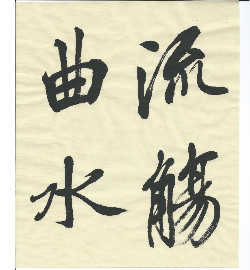 流觴
曲水